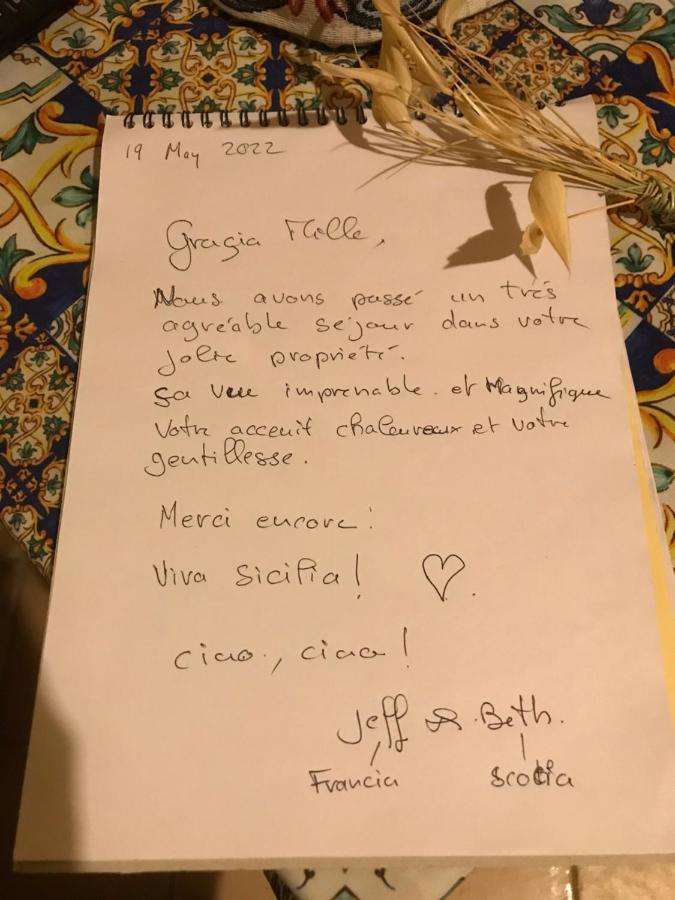 19 May 2022
Grazia Mille,
Nous avons passé un très
agréable séjour dans votre
jolie propriété.
Sa vue imprenable. et Magnifique
Votre acceuil chaleureux et votre
gentillesse.
Merci encore!
Viva Sicilia! ♡.
ciao., ciao!
Jeff & Beth.
Francia Scotia